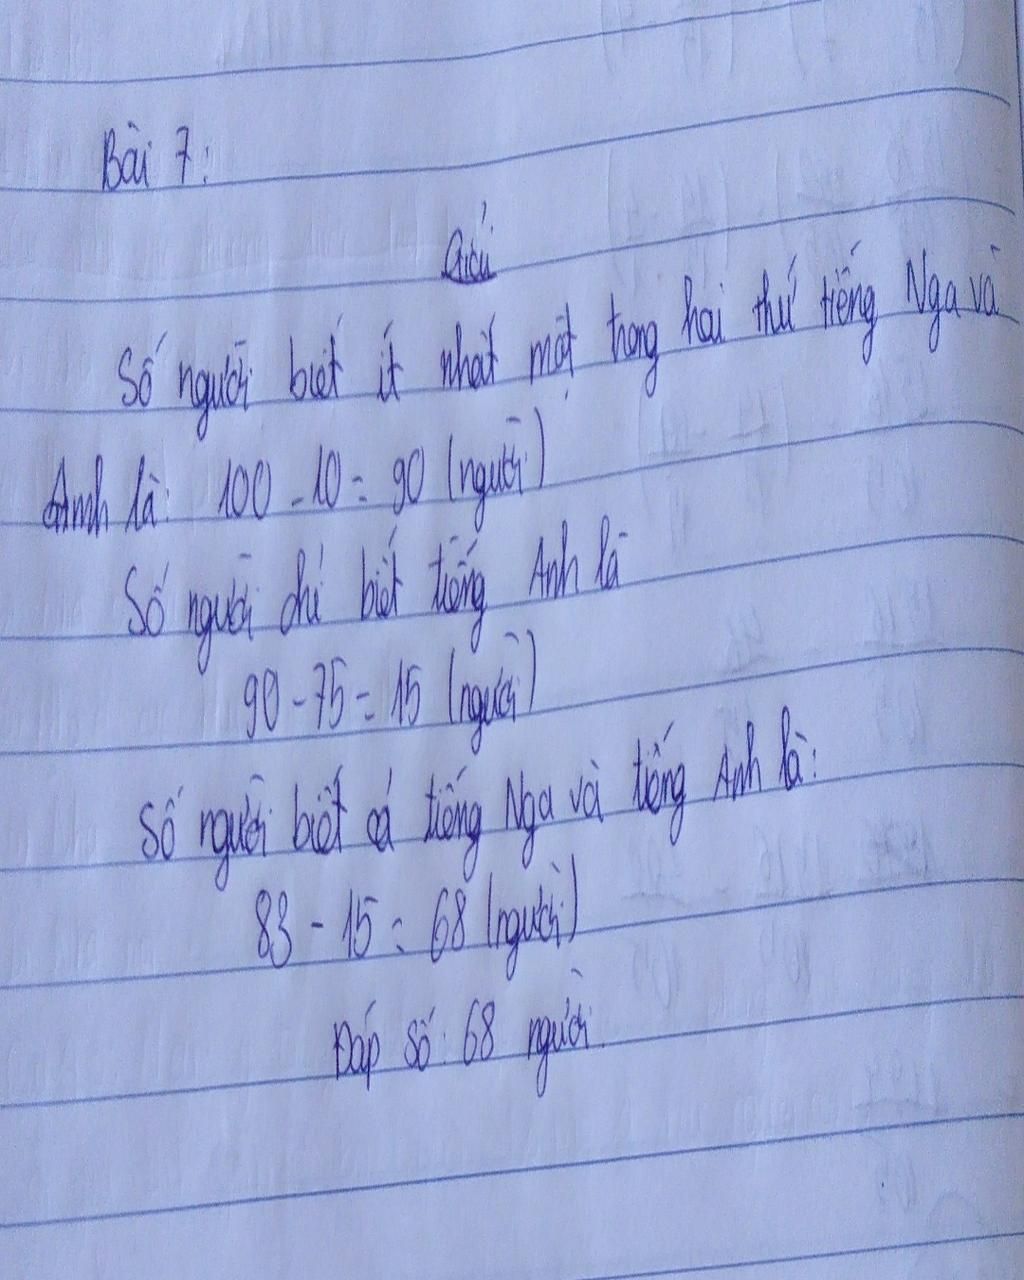 Bài 7:
Giải
Số người biết ít nhất một trong hai thứ tiếng Nga và
Anh là: 100 - 10 = 90 (người)
Số người chỉ biết tiếng Anh là
90 - 75 = 15 (người)
Số người biết cả tiếng Nga và tiếng Anh là:
83 - 15 = 68 (người)
Đáp số: 68 người.